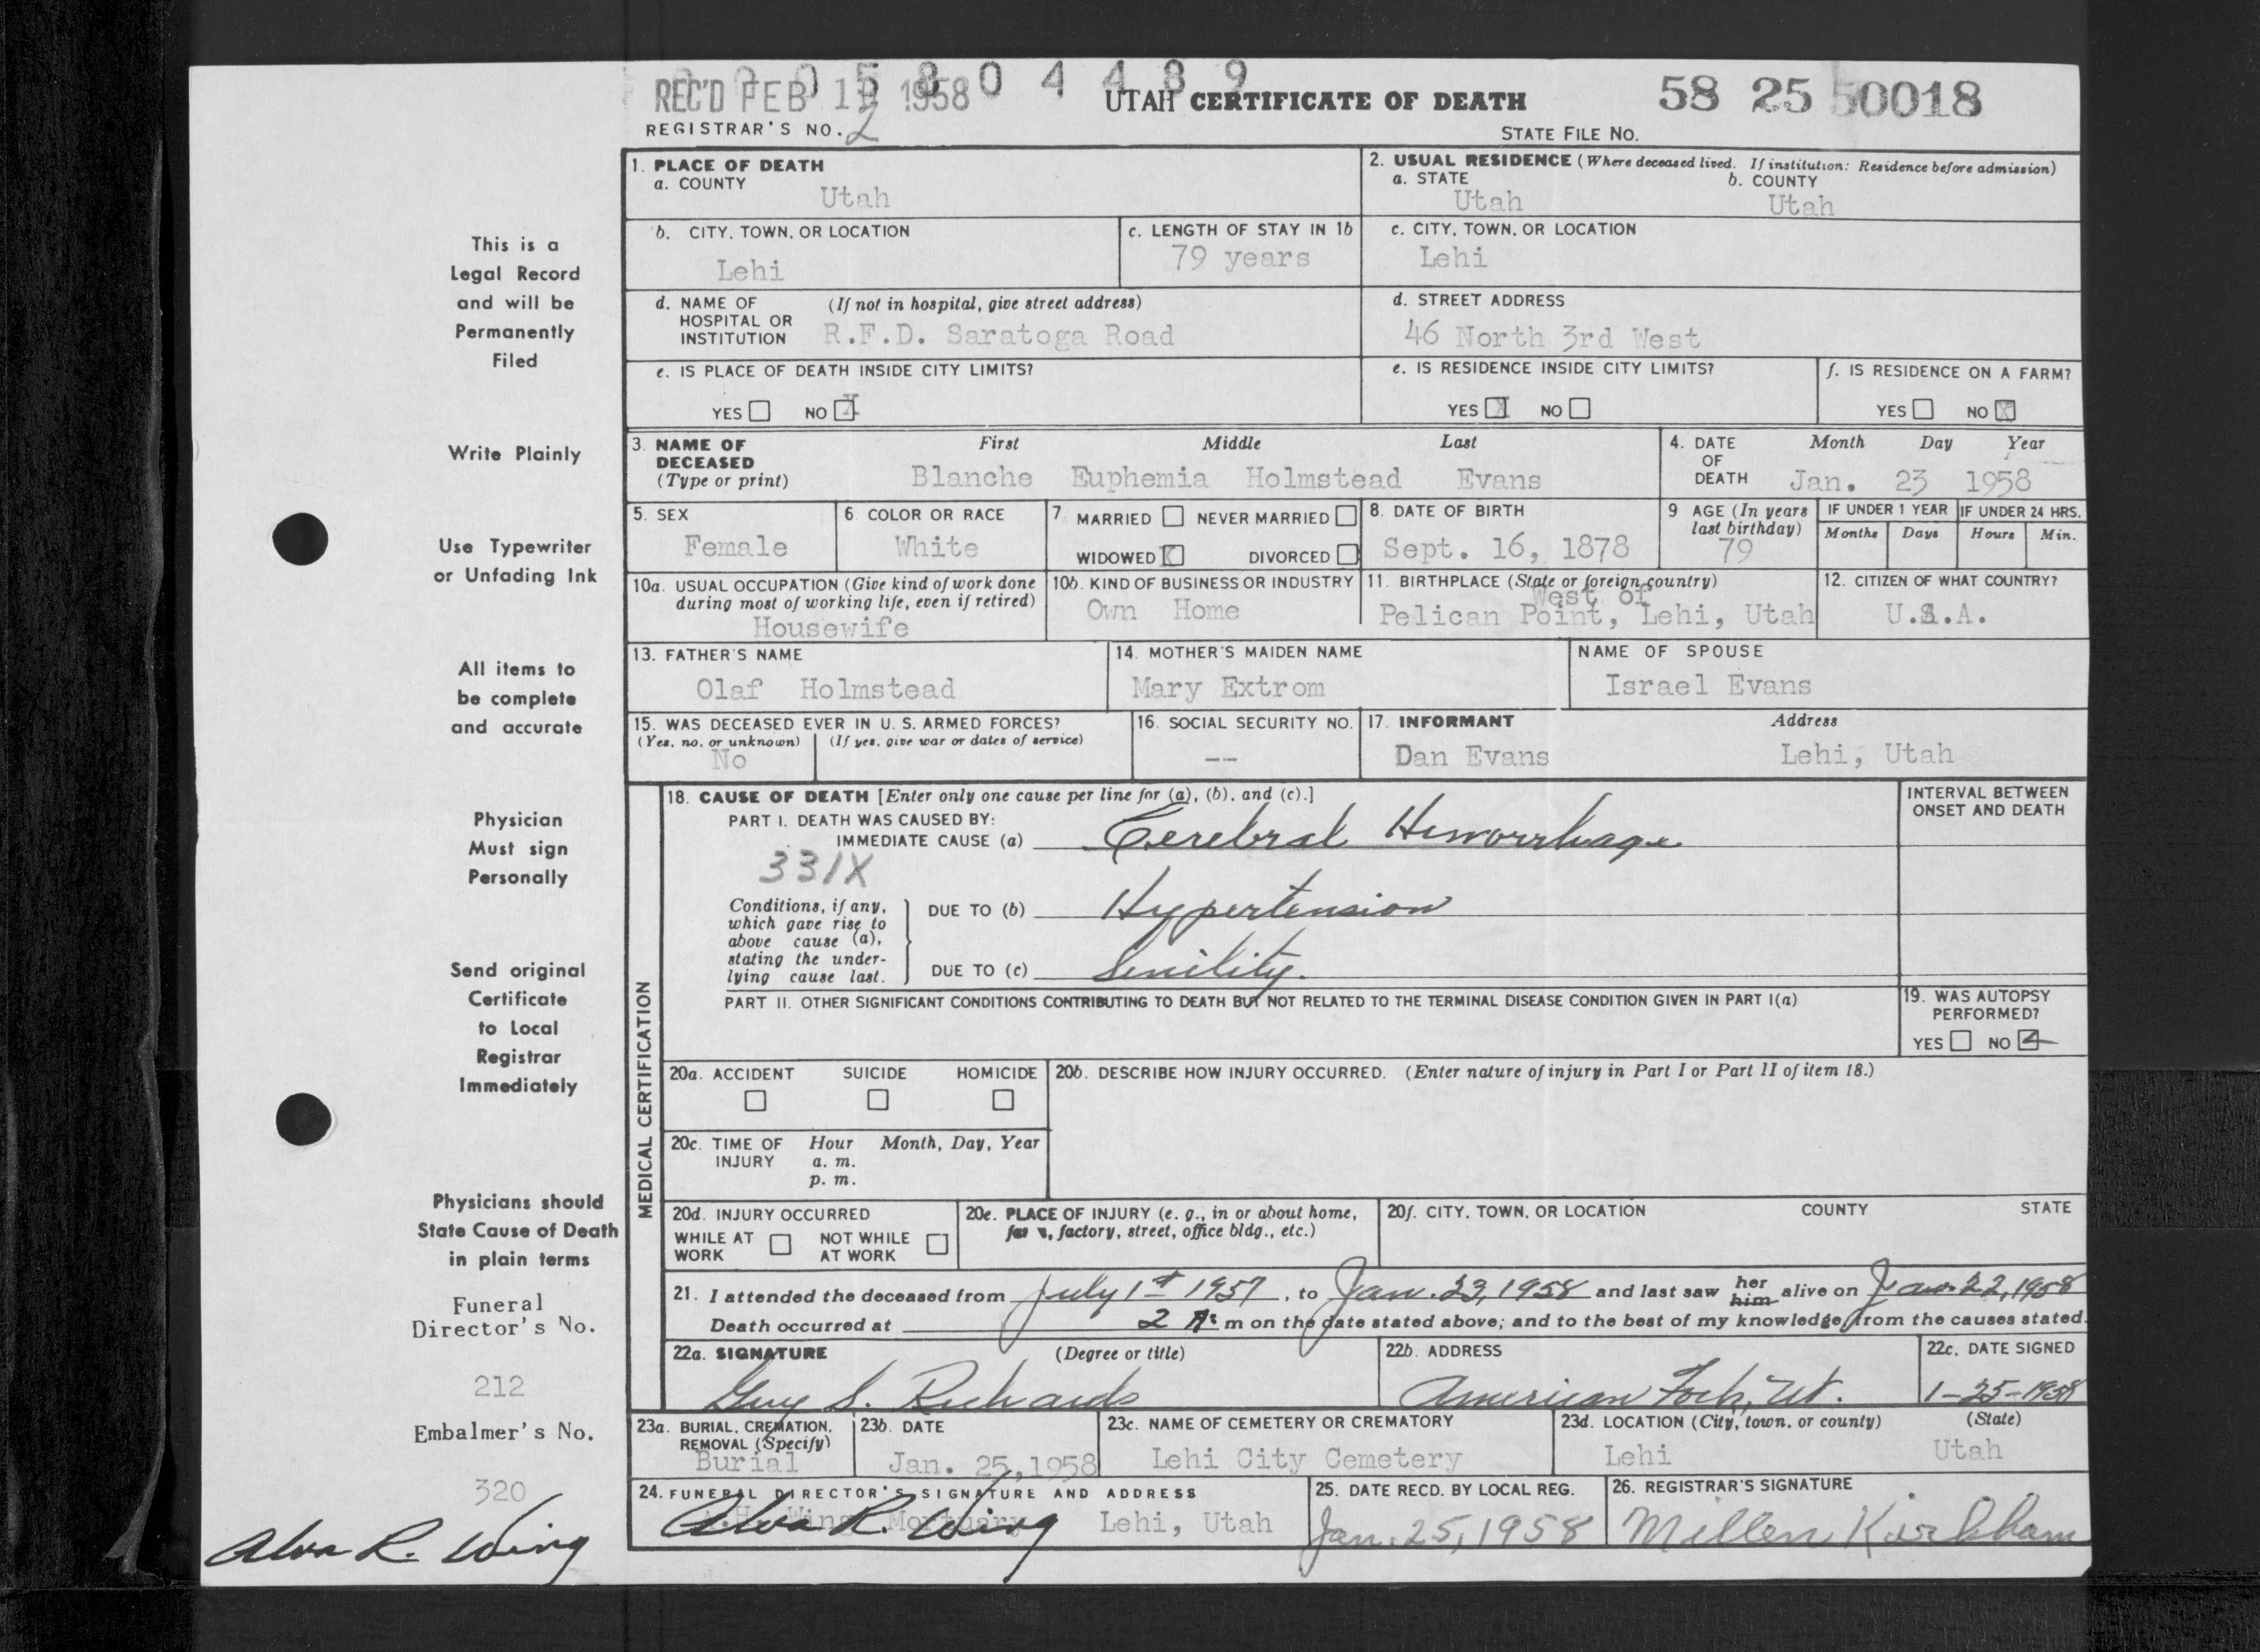 0005804489
REC'D FEB 1958
UTAH CERTIFICATE OF DEATH
58 25 50018
REGISTRAR'S NO. 2
STATE FILE NO.
1. PLACE OF DEATH
a. COUNTY
Utah
2. USUAL RESIDENCE (Where deceased lived. If institution: Residence before admission)
a. STATE b. COUNTY
Utah Utah
b. CITY, TOWN, OR LOCATION
Lehi
c. LENGTH OF STAY IN 1b
79 years
c. CITY, TOWN, OR LOCATION
Lehi
d. NAME OF HOSPITAL OR INSTITUTION (If not in hospital, give street address)
R.F.D. Saratoga Road
d. STREET ADDRESS
46 North 3rd West
e. IS PLACE OF DEATH INSIDE CITY LIMITS?
YES NO X
e. IS RESIDENCE INSIDE CITY LIMITS?
YES X NO
f. IS RESIDENCE ON A FARM?
YES NO X
3. NAME OF DECEASED (Type or print) First Middle Last
Blanche Euphemia Holmstead Evans
4. DATE OF DEATH Month Day Year
Jan. 23 1958
5. SEX
Female
6. COLOR OR RACE
White
7. MARRIED NEVER MARRIED
WIDOWED X DIVORCED
8. DATE OF BIRTH
Sept. 16, 1878
9 AGE (In years last birthday)
79
IF UNDER 1 YEAR IF UNDER 24 HRS.
Months Days Hours Min.
10a. USUAL OCCUPATION (Give kind of work done during most of working life, even if retired)
Housewife
10b. KIND OF BUSINESS OR INDUSTRY
Own Home
11. BIRTHPLACE (State or foreign country)
West of
Pelican Point, Lehi, Utah
12. CITIZEN OF WHAT COUNTRY?
U.S.A.
13. FATHER'S NAME
Olaf Holmstead
14. MOTHER'S MAIDEN NAME
Mary Extrom
NAME OF SPOUSE
Israel Evans
15. WAS DECEASED EVER IN U. S. ARMED FORCES?
(Yes, no, or unknown) (If yes, give war or dates of service)
No
16. SOCIAL SECURITY NO.
--
17. INFORMANT Address
Dan Evans Lehi, Utah
MEDICAL CERTIFICATION
18. CAUSE OF DEATH [Enter only one cause per line for (a), (b), and (c).]
INTERVAL BETWEEN ONSET AND DEATH
PART I. DEATH WAS CAUSED BY:
IMMEDIATE CAUSE (a) Cerebral Hemorrhage
331X
Conditions, if any, which gave rise to above cause (a), stating the underlying cause last.
DUE TO (b) Hypertension
DUE TO (c) Senility.
PART II. OTHER SIGNIFICANT CONDITIONS CONTRIBUTING TO DEATH BUT NOT RELATED TO THE TERMINAL DISEASE CONDITION GIVEN IN PART I(a)
19. WAS AUTOPSY PERFORMED?
YES NO
20a. ACCIDENT SUICIDE HOMICIDE
20b. DESCRIBE HOW INJURY OCCURRED. (Enter nature of injury in Part I or Part II of item 18.)
20c. TIME OF INJURY Hour Month, Day, Year
a. m.
p. m.
20d. INJURY OCCURRED
WHILE AT WORK NOT WHILE AT WORK
20e. PLACE OF INJURY (e. g., in or about home, farm, factory, street, office bldg., etc.)
20f. CITY, TOWN, OR LOCATION COUNTY STATE
21. I attended the deceased from July 1st 1957, to Jan. 23, 1958 and last saw her him alive on Jan. 22, 1958
Death occurred at 2 A. m on the date stated above; and to the best of my knowledge, from the causes stated.
22a. SIGNATURE (Degree or title)
Guy S. Richards
22b. ADDRESS
American Fork, Ut.
22c. DATE SIGNED
1-25-1958
23a. BURIAL, CREMATION, REMOVAL (Specify)
Burial
23b. DATE
Jan. 25, 1958
23c. NAME OF CEMETERY OR CREMATORY
Lehi City Cemetery
23d. LOCATION (City, town, or county) (State)
Lehi Utah
24. FUNERAL DIRECTOR'S SIGNATURE AND ADDRESS
Wing Mortuary Lehi, Utah
Alva R. Wing
25. DATE RECD. BY LOCAL REG.
Jan. 25, 1958
26. REGISTRAR'S SIGNATURE
Millen Kirkham
This is a
Legal Record
and will be
Permanently
Filed
Write Plainly
Use Typewriter
or Unfading Ink
All items to
be complete
and accurate
Physician
Must sign
Personally
Send original
Certificate
to Local
Registrar
Immediately
Physicians should
State Cause of Death
in plain terms
Funeral
Director's No.
212
Embalmer's No.
320
Alva R. Wing